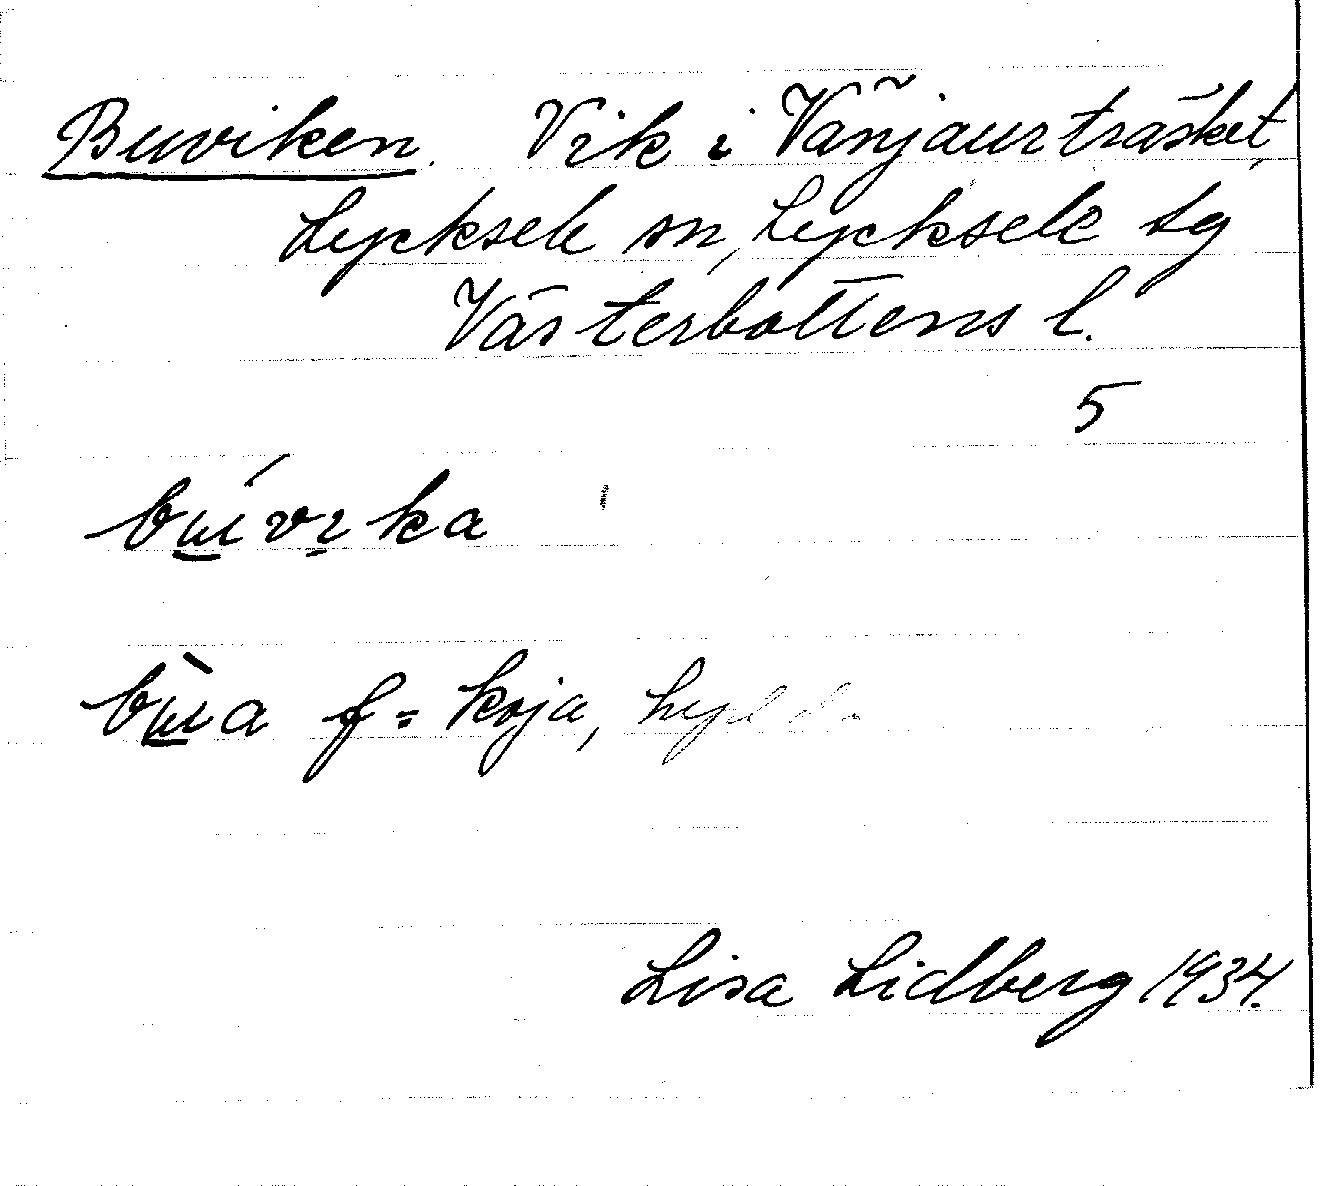 Buviken. Vik i Vänjaurträsket,
Lycksele sn, Lycksele tg
Västerbottens l.
5
bɯ́vıka
bɯ̀a f = koja,
Lisa Lidberg 1934.